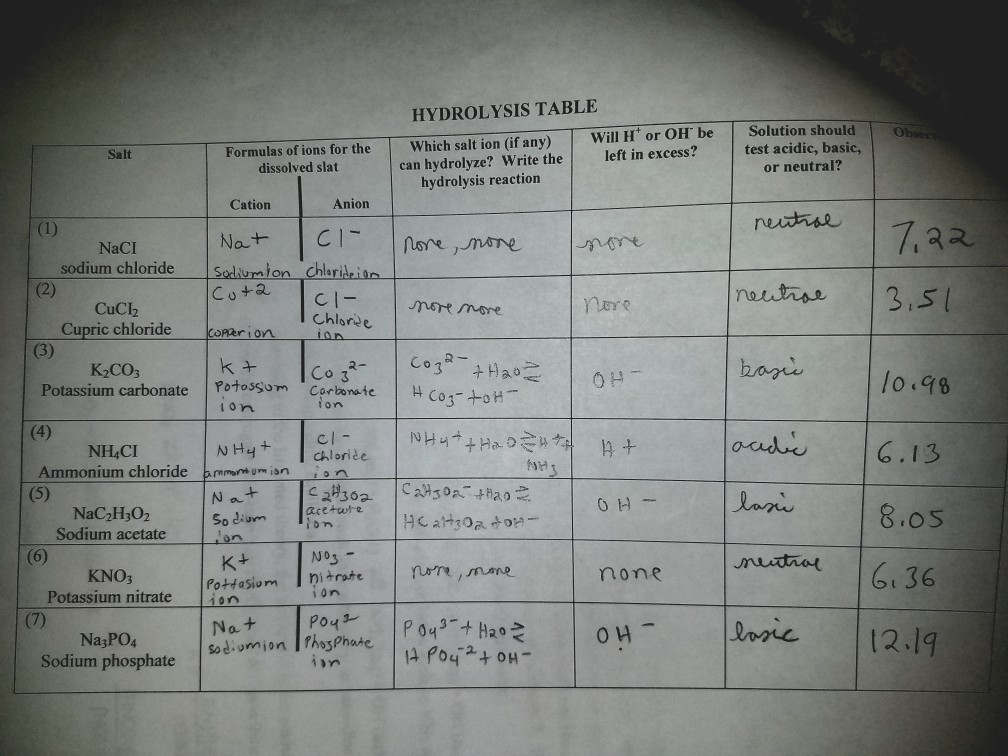 HYDROLYSIS TABLE
Salt
Formulas of ions for the
dissolved slat
Cation Anion
Which salt ion (if any)
can hydrolyze? Write the
hydrolysis reaction
Will H⁺ or OH⁻ be
left in excess?
Solution should
test acidic, basic,
or neutral?
(1)
NaCl
sodium chloride
Na+
Sodium ion
Cl-
Chloride ion
none, none
none
neutral
7.22
(2)
CuCl₂
Cupric chloride
Cu+2
copper ion
Cl-
Chloride
ion
none none
none
neutral
3.51
(3)
K₂CO₃
Potassium carbonate
K+
Potassium
ion
CO3²⁻
Carbonate
ion
CO3²⁻ + H2O ⇌
HCO3- + OH-
OH-
basic
10.98
(4)
NH₄Cl
Ammonium chloride
NH4+
ammonium ion
Cl-
chloride
ion
NH4+ + H2O ⇌ H+ +
NH3
H+
acidic
6.13
(5)
NaC₂H₃O₂
Sodium acetate
Na+
Sodium
ion
C2H3O2
acetate
ion
C2H3O2- + H2O ⇌
HC2H3O2 + OH-
OH-
basic
8.05
(6)
KNO₃
Potassium nitrate
K+
Pottasium
ion
NO3-
nitrate
ion
none, none
none
neutral
6.36
(7)
Na₃PO₄
Sodium phosphate
Na+
sodium ion
Phosphate
ion
PO4³⁻ + H2O ⇌
HPO4⁻² + OH-
OH-
basic
12.19